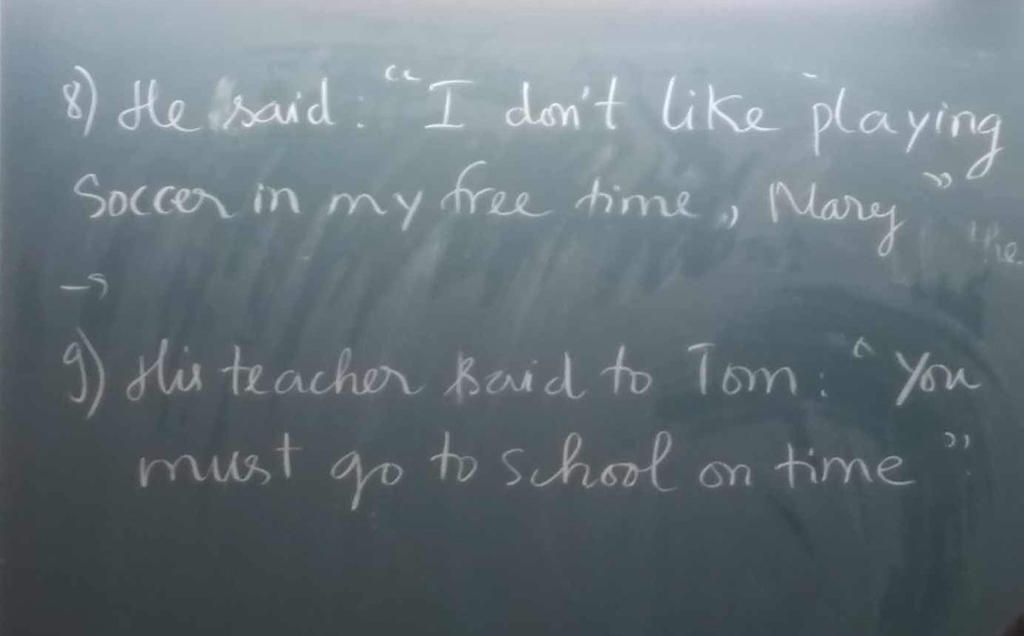 8) He said: "I don't like playing
Soccer in my free time, Mary"
the
→
9) His teacher said to Tom: "You
must go to school on time".